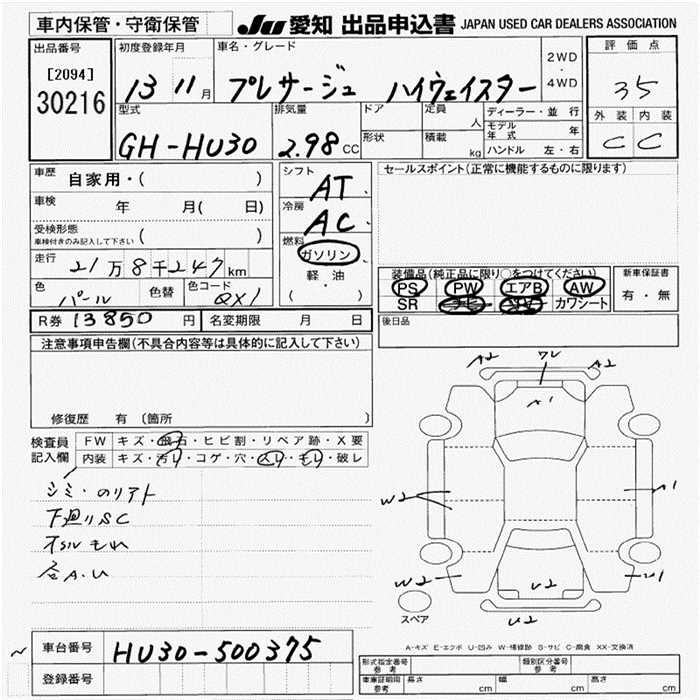 車内保管・守衛保管
JU 愛知 出品申込書 JAPAN USED CAR DEALERS ASSOCIATION
出品番号
[2094]
30216
初度登録年月
13 11月
車名・グレード
プレサージュ ハイウェイスター
2WD
・
4WD
評価点
35
外装 内装
C C
型式
GH-HU30
排気量
2.98 CC
ドア
形状
定員
人
積載
kg
ディーラー・並行
モデル年式 年
ハンドル 左・右
車歴
自家用・( )
車検
年 月( 日)
受検形態
車検付きのみ記入して下さい ( )
走行
21万8千247km
色
パール
色替
色コード
QX1
シフト
AT
冷房
AC
燃料
ガソリン
軽・油
( )
セールスポイント(正常に機能するものに限ります)
装備品(純正品に限り○をつけてください)
PS PW エアB AW
SR ナビ TV カワシート
新車保証書
有・無
後日品
R券 13850円
名変期限 月 日
注意事項申告欄(不具合内容等は具体的に記入して下さい)
修復歴 有 〔箇所 〕
検査員
記入欄
FW キズ・飛石・ヒビ割・リペア跡・X要
内装 キズ・汚レ・コゲ・穴・スレ・モレ・破レ
シミ・のリアト
下廻りSC
オイルもれ
各A.U
A2 ワレ A2
A1
W2 A1
W2 U2 U1
U2
スペア
A-キズ E-エクボ U-凹み W-補修跡 S-サビ C-腐食 XX-交換済
車台番号 HU30-500375
登録番号
形式指定番号
参考
類別区分番号
参考
車庫証明用
参考
長さ cm 幅 cm 高さ cm